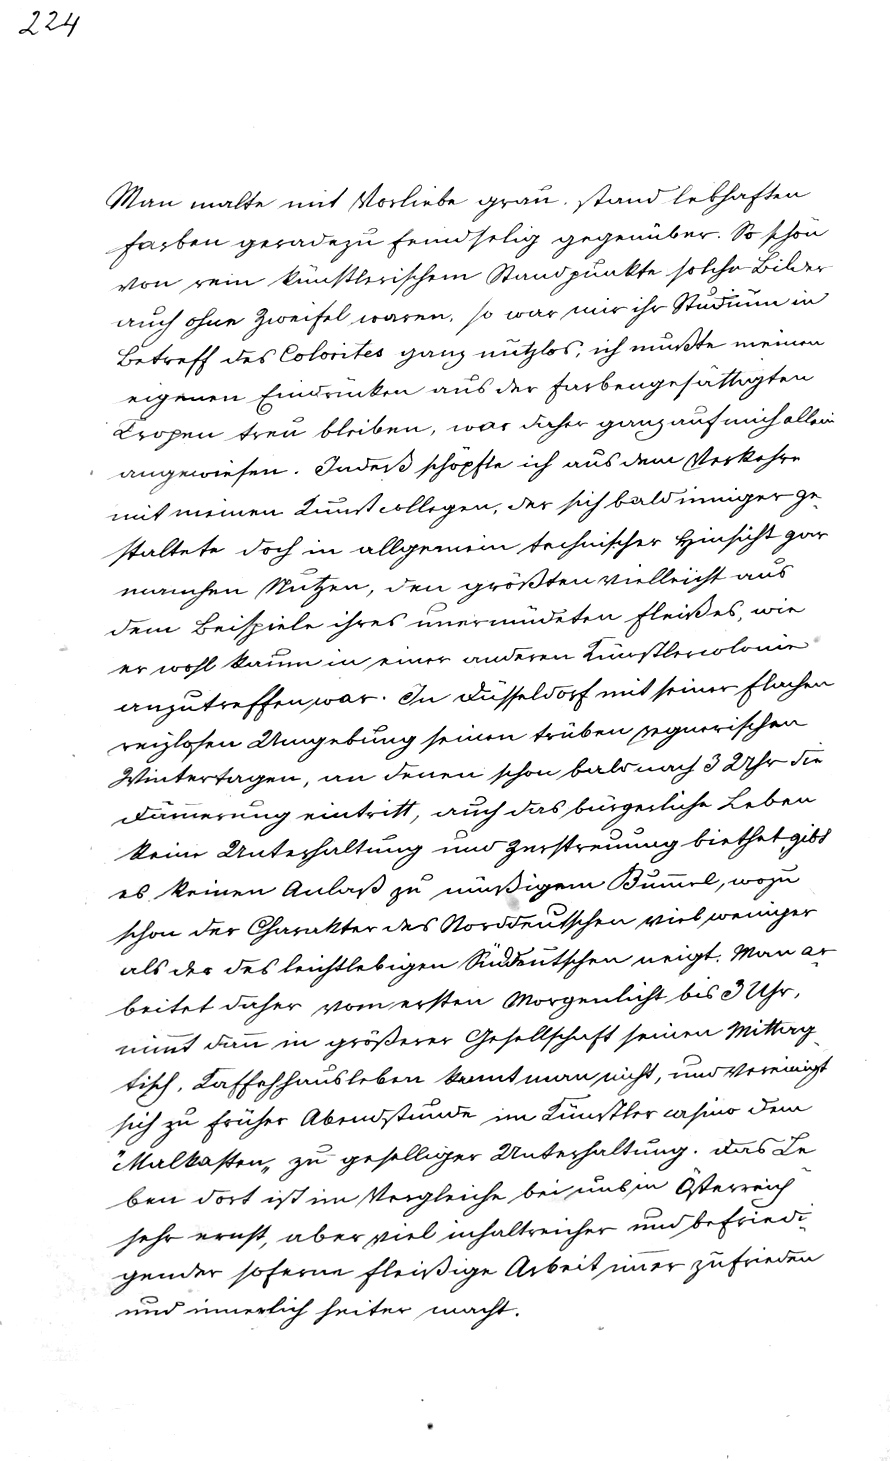 224
Man malte mit Vorliebe grau, stand lebhaften
Farben geradezu feindselig gegenüber. So schön
von rein künstlerischem Standpunkte solche Bilder
auch ohne Zweifel waren, so war mir ihr Studium in
Betreff des Colorites ganz nutzlos, ich mußte meinen
eigenen Eindrücken aus der farbengesättigten
Tropen treu bleiben, war daher ganz auf mich allein
angewiesen. Indeß schöpfte ich aus dem Verkehre
mit meinen Kunstcollegen, der sich bald inniger ge-
staltete doch in allgemein technischer Hinsicht gar
manchen Nutzen, den größten vielleicht aus
dem Beispiele ihres unermüdeten Fleißes, wie
er wohl kaum in einer anderen Künstlercolonie
anzutreffen war. In Düsseldorf mit seiner flachen
reizlosen Umgebung seinen trüben regnerischen
Wintertagen, an denen schon bald nach 3 Uhr die
Dämerung eintritt, auch das bürgerliche Leben
keine Unterhaltung und Zerstreuung biethet, gibt
es keinen Anlaß zu müßigem Bummel, wozu
schon der Charakter des Norddeutschen viel weniger
als der des leichtlebigen Süddeutschen neigt. Man ar-
beitet daher vom ersten Morgenlicht bis 3 Uhr,
nimmt dann in größerer Gesellschaft seinen Mittag-
tisch, Kaffehhausleben kennt man nicht, und vereinigt
sich zu früher Abendstunde im Künstler casino dem
"Malkasten" zu geselliger Unterhaltung. Das Le-
ben dort ist im Vergleiche bei uns in Österreich
sehr ernst, aber viel inhaltreicher und befriedi-
gender soferne fleißige Arbeit immer zufrieden
und innerlich heiter macht.